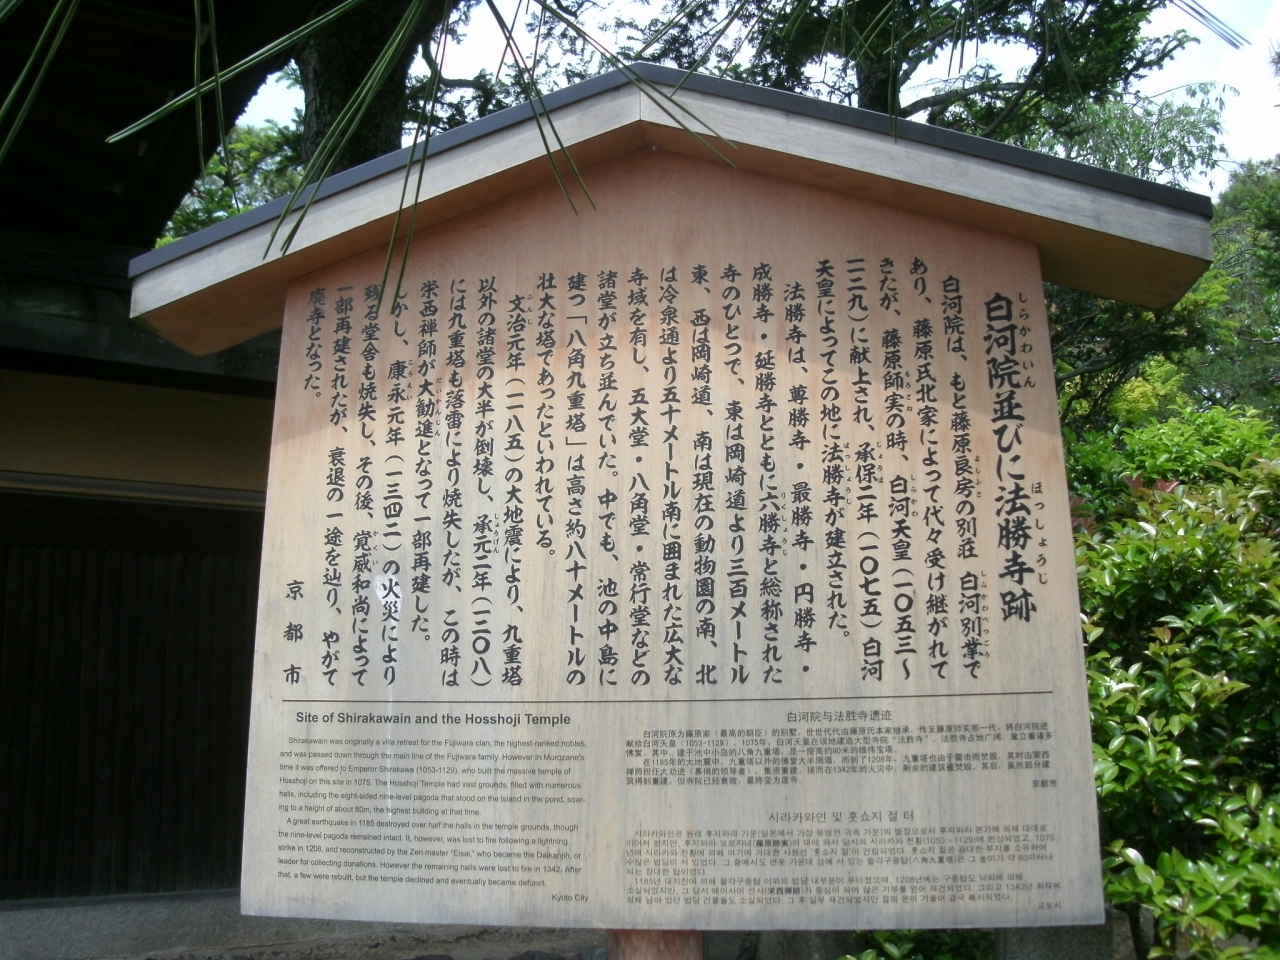 白河院並びに法勝寺跡
白河院は、もと藤原良房の別荘 白河別業で
あり、藤原氏北家によって代々受け継がれて
きたが、藤原師実の時、白河天皇(一〇五三〜
一一二九)に献上され、承保二年(一〇七五)白河
天皇によってこの地に法勝寺が建立された。
法勝寺は、尊勝寺・最勝寺・円勝寺・
成勝寺・延勝寺とともに六勝寺と総称された
寺のひとつで、東は岡崎道より三百メートル
東、西は岡崎道、南は現在の動物園の南、北
は冷泉通より五十メートル南に囲まれた広大な
寺域を有し、五大堂・八角堂・常行堂などの
諸堂が立ち並んでいた。中でも、池の中島に
建つ「八角九重塔」は高さ約八十メートルの
壮大な塔であったといわれている。
文治元年(一一八五)の大地震により、九重塔
以外の諸堂の大半が倒壊し、承元二年(一二〇八)
には九重塔も落雷により焼失したが、この時は
栄西禅師が大勧進となって一部再建した。
しかし、康永元年(一三四二)の火災により
残る堂舎も焼失し、その後、覚威和尚によって
一部再建されたが、衰退の一途を辿り、やがて
廃寺となった。
京都市
Site of Shirakawain and the Hosshoji Temple
Shirakawain was originally a villa retreat for the Fujiwara clan, the highest-ranked nobles,
and was passed down through the main line of the Fujiwara family. However in Morozane's
time it was offered to Emperor Shirakawa (1053-1129), who built the massive temple of
Hosshoji on this site in 1075. The Hosshoji Temple had vast grounds, filled with numerous
halls, including the eight-sided nine-level pagoda that stood on the island in the pond, soar-
ing to a height of about 80m, the highest building at that time.
A great earthquake in 1185 destroyed over half the halls in the temple grounds, though
the nine-level pagoda remained intact. It, however, was lost to fire following a lightning
strike in 1208, and reconstructed by the Zen master "Eisai," who became the Daikanjin, or
leader for collecting donations. However the remaining halls were lost to fire in 1342. After
that, a few were rebuilt, but the temple declined and eventually became defunct.
Kyoto City
白河院与法胜寺遗迹
白河院原为藤原家（最高的朝臣）的别墅，世世代代由藤原氏本家继承，传至藤原师实那一代，将白河院进
献给白河天皇（1053-1129）。1075年，白河天皇在该地建造大型寺院“法胜寺”。法胜寺占地广阔，耸立着诸多
佛堂，其中，建于池中小岛的八角九重塔，是一座高约80米的雄伟宝塔。
在1185年的大地震中，九重塔以外的佛堂大半倒塌，而到了1208年，九重塔也由于雷击而焚毁，其时由荣西
禅师担任大劝进（募捐的领导者），集资重建。接而在1342年的火灾中，剩余的建筑被焚毁，其后，虽然部分建
筑得到重建，但寺院已经衰败，最终变为废寺。
京都市
시라카와인 및 홋쇼지 절 터
시라카와인은 원래 후지와라 가문(일본에서 가장 유명한 귀족 가문)의 별장으로서 후지와라 본가에 의해 대대로
이어져 왔지만, 후지와라 모로자네(藤原師実)의 대에 와서 당시의 시라카와 천황(1053～1129)에 헌상되었고, 1075
년에 시라카와 천황에 의해 여기에 거대한 사원인 '홋쇼지 절'이 건립되었다. 홋쇼지 절은 광대한 부지를 소유하며
수많은 법당이 서 있었다. 그 중에서도 연못 가운데 섬에 서 있는 팔각구중탑(八角九重塔)은 그 높이가 약 80미터나
되는 장대한 탑이었다.
1185년 대지진에 의해 팔각구중탑 이외의 법당 대부분이 무너졌으며, 1208년에는 구중탑도 낙뢰에 의해
소실되었지만, 그 당시 에이사이 선사(栄西禅師)가 중심이 되어 많은 기부를 얻어 재건되었다. 그리고 1342년 화재에
의해 남아 있던 법당 건물들도 소실되었다. 그 후 일부 재건되었지만 절의 운이 기울어 결국 폐사되었다.
교토시